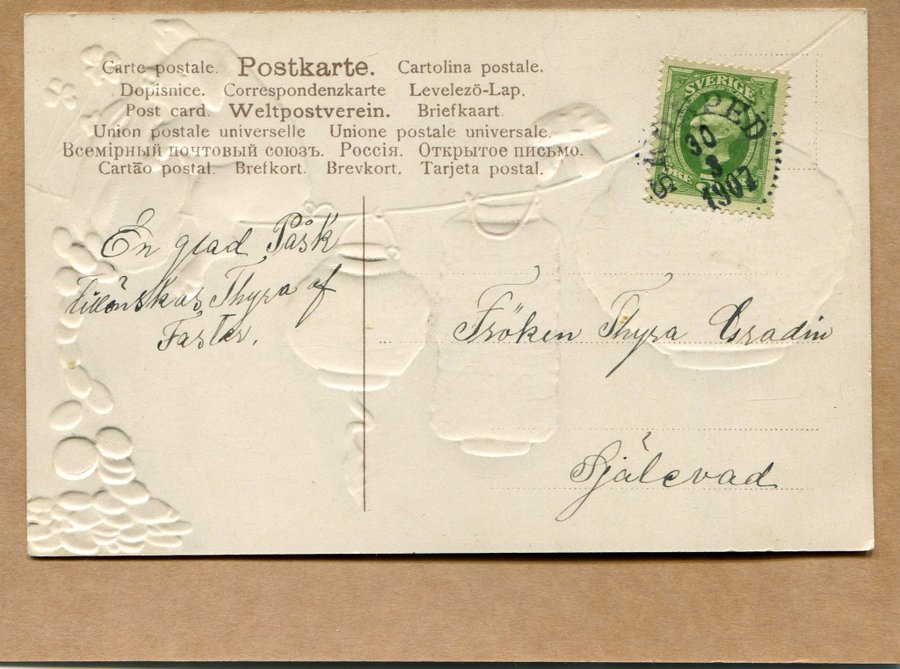 Carte postale. Postkarte. Cartolina postale.
Dopisnice. Correspondenzkarte Levelező-Lap.
Post card. Weltpostverein. Briefkaart
Union postale universelle Unione postale universale.
Всемірный почтовый союзъ. Россія. Открытое письмо.
Cartão postal. Brefkort. Brevkort. Tarjeta postal.
SVERIGE
ÖRE
30
3
1907
En glad Påsk
tillönskas Thyra af
Faster.
Fröken Thyra Gradin
Själevad